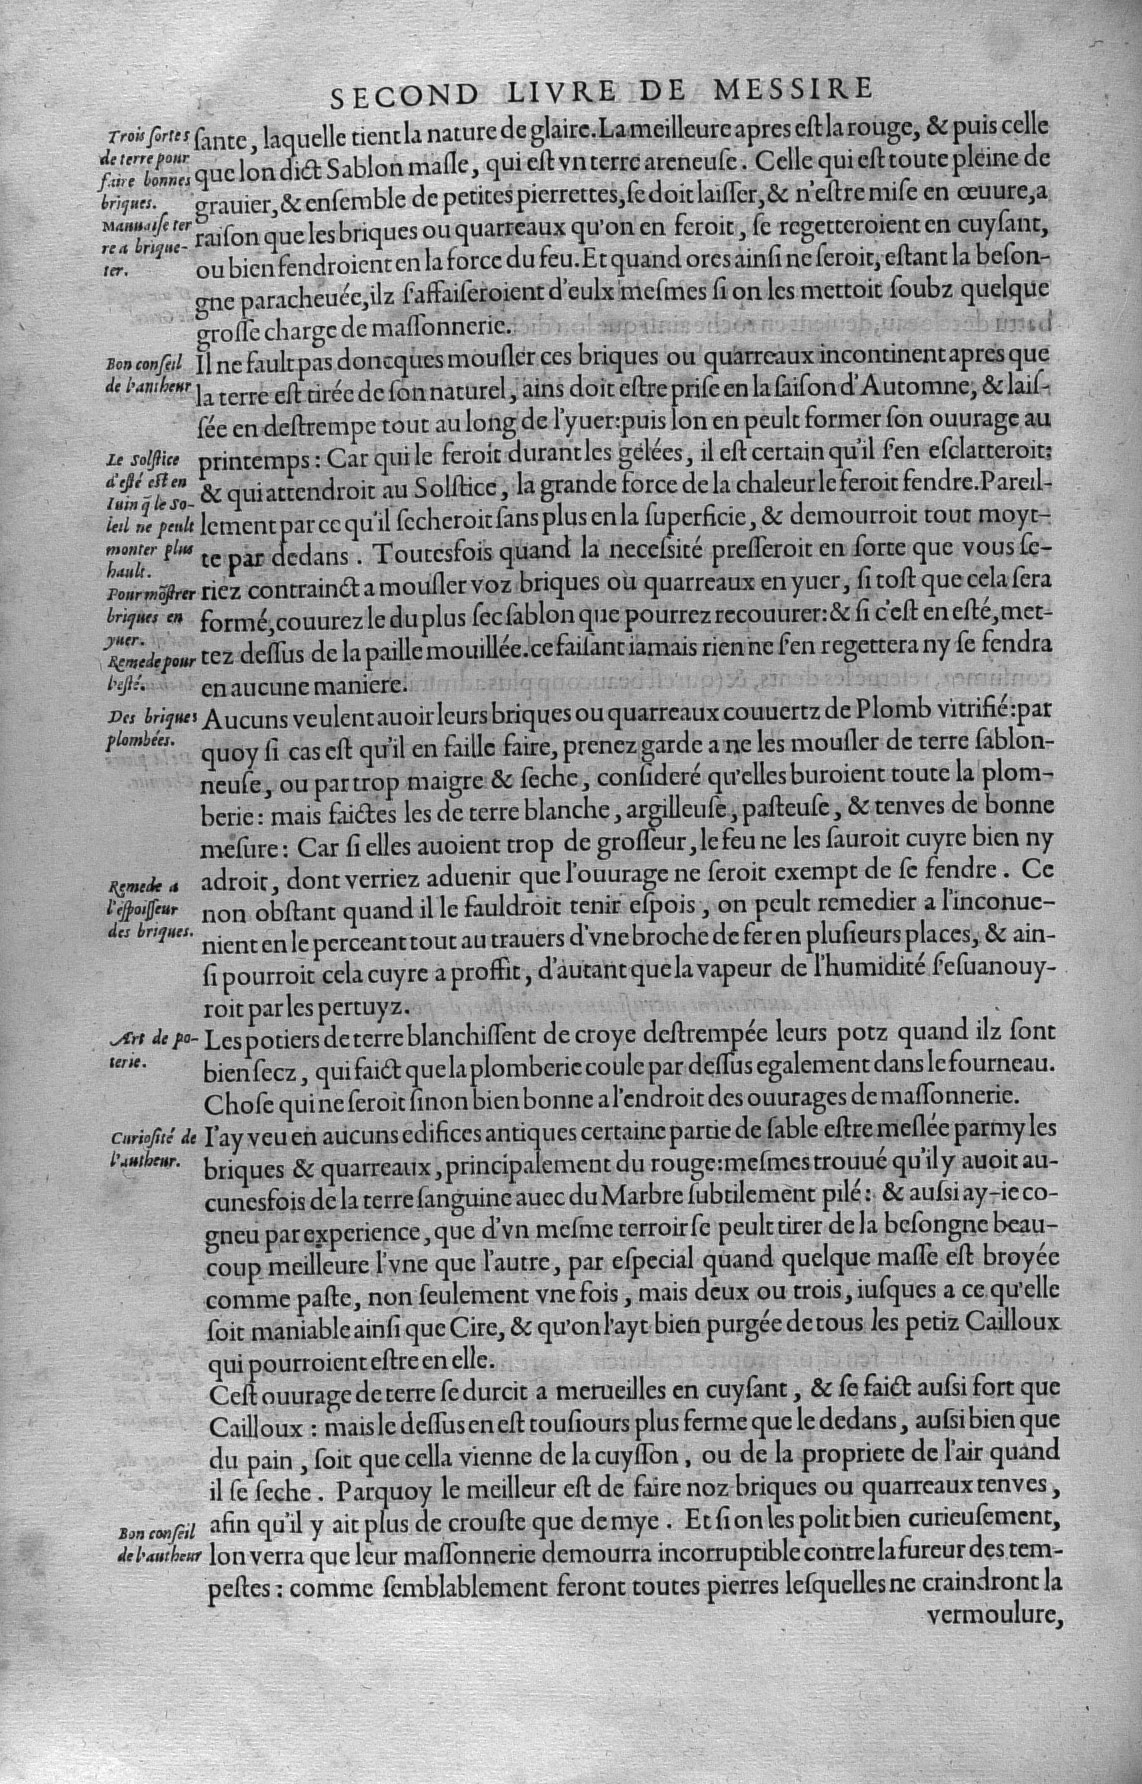 SECOND LIVRE DE MESSIRE
Trois ſortes
de terre pour
faire bonnes
briques.
Mauuaiſe ter
re a brique-
ter.
ſante, laquelle tient la nature de glaire. La meilleure apres eſt la rouge, & puis celle
que lon dict Sablon maſle, qui eſt vn terre areneuſe. Celle qui eſt toute pleine de
grauier, & enſemble de petites pierrettes, ſe doit laiſſer, & n'eſtre miſe en œuure, a
raiſon que les briques ou quarreaux qu'on en feroit, ſe regetteroient en cuyſant,
ou bien fendroient en la force du feu. Et quand ores ainſi ne ſeroit, eſtant la beſon-
gne paracheuée, ilz ſ'affaiſeroient d'eulx meſmes ſi on les mettoit ſoubz quelque
groſſe charge de maſſonnerie.
Bon conſeil
de l'autheur
Il ne fault pas doncques mouſler ces briques ou quarreaux incontinent apres que
la terre eſt tirée de ſon naturel, ains doit eſtre priſe en la ſaiſon d'Automne, & laiſ-
ſée en deſtrempe tout au long de l'yuer: puis lon en peult former ſon ouurage au
Le Solſtice
d'eſté eſt en
Iuin q̃ le So-
leil ne peult
monter plus
hault.
Pour mõſtrer
briques en
yuer.
Remede pour
l'eſté.
printemps: Car qui le feroit durant les gelées, il eſt certain qu'il ſ'en eſclatteroit:
& qui attendroit au Solſtice, la grande force de la chaleur le feroit fendre. Pareil-
lement par ce qu'il ſecheroit ſans plus en la ſuperficie, & demourroit tout moyt-
te par dedans. Toutesfois quand la neceſsité preſſeroit en ſorte que vous ſe-
riez contrainct a mouſler voz briques ou quarreaux en yuer, ſi toſt que cela ſera
formé, couurez le du plus ſec ſablon que pourrez recouurer: & ſi c'eſt en eſté, met-
tez deſſus de la paille mouillée. ce faiſant iamais rien ne ſ'en regettera ny ſe fendra
en aucune maniere.
Des briques
plombées.
Aucuns veulent auoir leurs briques ou quarreaux couuertz de Plomb vitrifié: par
quoy ſi cas eſt qu'il en faille faire, prenez garde a ne les mouſler de terre ſablon-
neuſe, ou par trop maigre & ſeche, conſideré qu'elles buroient toute la plom-
berie: mais faictes les de terre blanche, argilleuſe, paſteuſe, & tenves de bonne
meſure: Car ſi elles auoient trop de groſſeur, le feu ne les ſauroit cuyre bien ny
Remede a
l'eſpoiſſeur
des briques.
adroit, dont verriez aduenir que l'ouurage ne ſeroit exempt de ſe fendre. Ce
non obſtant quand il le fauldroit tenir eſpois, on peult remedier a l'inconue-
nient en le perceant tout au trauers d'vne broche de fer en pluſieurs places, & ain-
ſi pourroit cela cuyre a proffit, d'autant que la vapeur de l'humidité ſ'eſuanouy-
roit par les pertuyz.
Art de po-
terie.
Les potiers de terre blanchiſſent de croye deſtrempée leurs potz quand ilz ſont
bien ſecz, qui faict que la plomberie coule par deſſus egalement dans le fourneau.
Choſe qui ne ſeroit ſinon bien bonne a l'endroit des ouurages de maſſonnerie.
Curioſité de
l'autheur.
I'ay veu en aucuns edifices antiques certaine partie de ſable eſtre meſlée parmy les
briques & quarreaux, principalement du rouge: meſmes trouué qu'il y auoit au-
cunesfois de la terre ſanguine auec du Marbre ſubtilement pilé: & auſsi ay-ie co-
gneu par experience, que d'vn meſme terroir ſe peult tirer de la beſongne beau-
coup meilleure l'vne que l'autre, par eſpecial quand quelque maſſe eſt broyée
comme paſte, non ſeulement vne fois, mais deux ou trois, iuſques a ce qu'elle
ſoit maniable ainſi que Cire, & qu'on l'ayt bien purgée de tous les petiz Cailloux
qui pourroient eſtre en elle.
Ceſt ouurage de terre ſe durcit a merueilles en cuyſant, & ſe faict auſsi fort que
Cailloux: mais le deſſus en eſt touſiours plus ferme que le dedans, auſsi bien que
du pain, ſoit que cella vienne de la cuyſſon, ou de la propriete de l'air quand
il ſe ſeche. Parquoy le meilleur eſt de faire noz briques ou quarreaux tenves,
Bon conſeil
de l'autheur
afin qu'il y ait plus de crouſte que de mye. Et ſi on les polit bien curieuſement,
lon verra que leur maſſonnerie demourra incorruptible contre la fureur des tem-
peſtes: comme ſemblablement feront toutes pierres leſquelles ne craindront la
vermoulure,